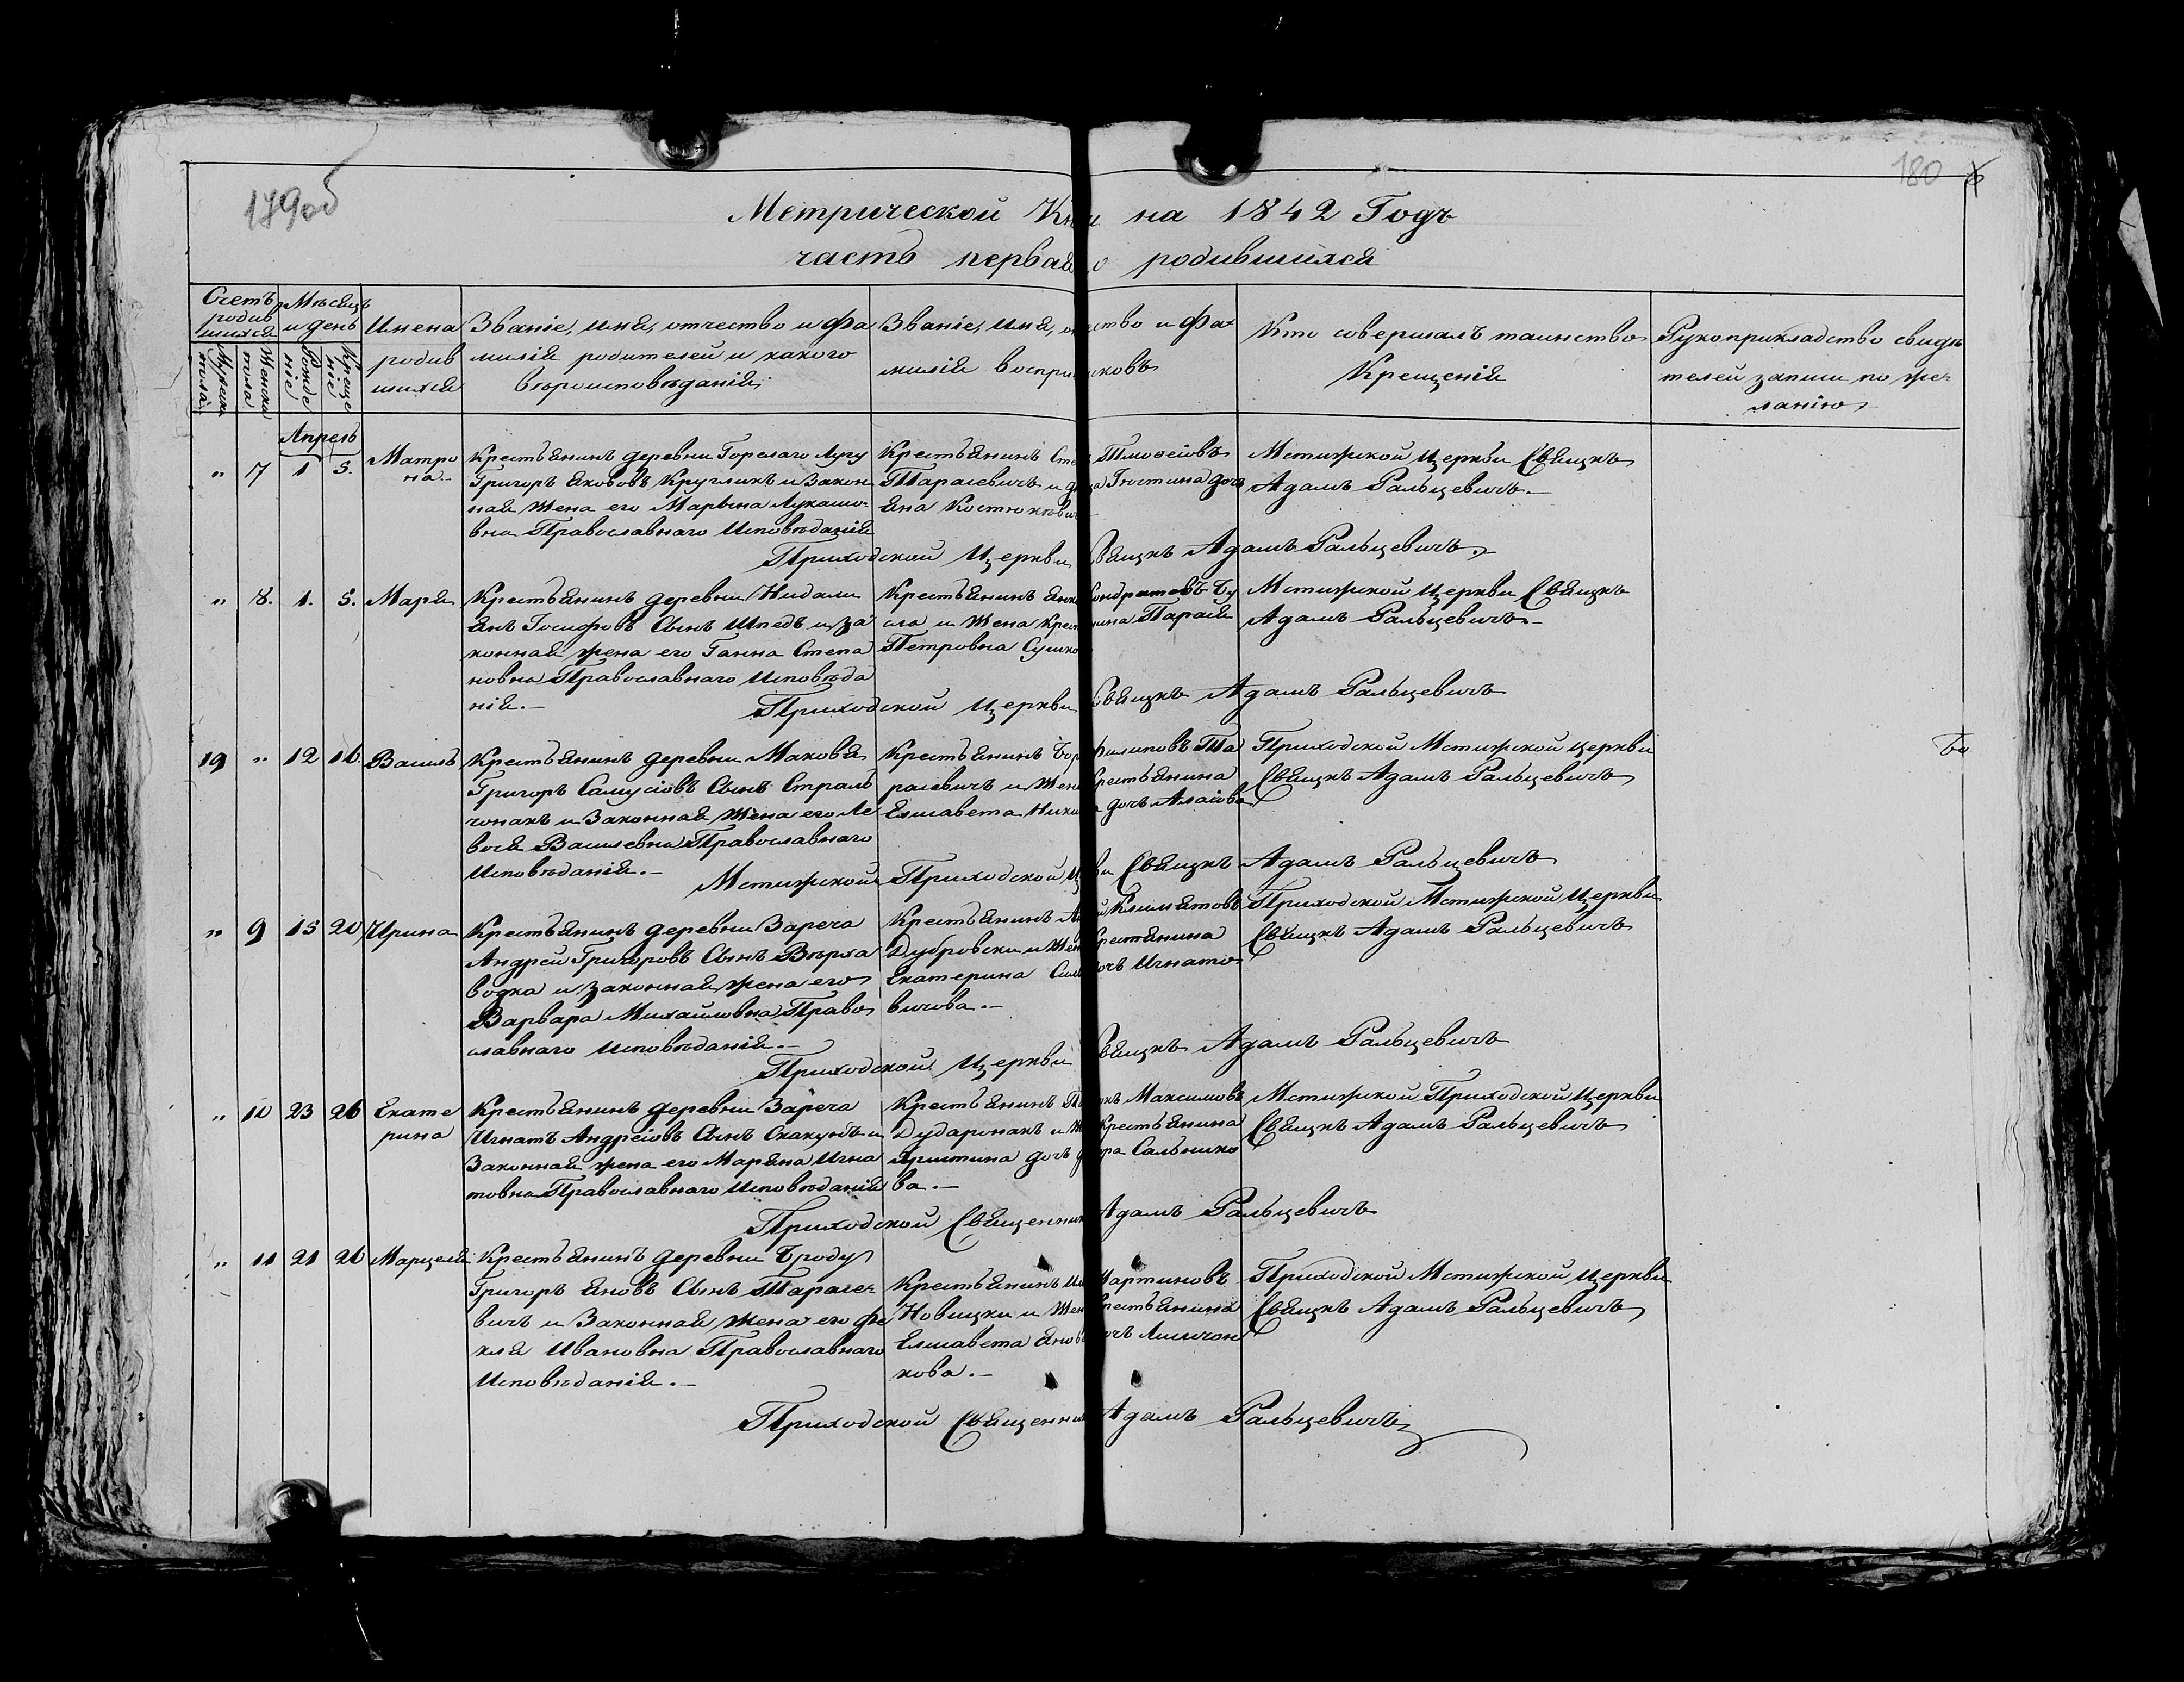 179об
180
Метрической Кни на 1842 Годъ
часть первая о родившихся
Счетъ родив шихся
Мужска пола
Женска пола
Мѣсяцъ и день
Рожде ніе
Креще ніе
Имена родив шихся
Званіе, имя, отчество и фа
милія родителей и какого
вѣроисповѣданія
Званіе, имя, о ество и фа
милія воспри иковъ
Кто совершалъ таинство
Крещенія
Рукоприкладство свидѣ
телей записи по же-
ланію
Апрель
" 7 1 5. Матро
на
Крестьянинъ деревни Горелаго Лугу
Григоръ Якововъ Кругликъ и Закон
ная Жена его Марьяна Лукашо-
вна Православнаго Исповѣданія
Крестьянинъ Сте Тимофеіовъ
Тарасевичъ и д ца Іюстина дочь
Яна Костюкеви
Мстижской Церкви Свящкъ
Адамъ Ральцевичъ.
Приходской Церкви Свящкъ Адамъ Ральцевичъ
" 8. 1. 5. Марія
Крестьянинъ деревни Нидали
Янъ Іосифовъ Сынъ Шпедъ и за
конная жена его Ганна Степа
новна Православнаго Исповѣда
нія.
Крестьянинъ Янк ондратовъ Бу
сла и Жена Крест нина Парася
Петровна Сушко
Мстижской Церкви Свящкъ
Адамъ Ральцевичъ
Приходской Церкви Свящкъ Адамъ Ральцевичъ
19 " 12 16 Василь
Крестьянинъ деревни Маковья
Григоръ Самусіовъ Сынъ Страль
чонакъ и Законная Жена его Ле
вося Василевна Православнаго
Исповѣданія.
Крестьянинъ Бор Филиповъ Та
расевичъ и Жен Крестьянина
Елисавета Ники дочь Апаіова
Приходской Мстижской Церкви
Свящкъ Адамъ Ральцевичъ
Мстижской Приходской Ц ви Свящкъ Адамъ Ральцевичъ
" 9 15 20 Ирина
Крестьянинъ деревни Зареча
Андрей Григоровъ Сынъ Верха
водка и законная жена его
Варвара Михайловна Право
славнаго Исповѣданія.
Крестьянинъ А й Климятовъ
Дубровски и Жен Крестянина
Екатерина Сил очь Игнато
вичова.
Приходской Мстижской Церкви
Свящкъ Адамъ Ральцевичъ
Приходской Церкви Свящкъ Адамъ Ральцевичъ
" 10 23 26 Екате
рина
Крестьянинъ деревни Зареча
Игнатъ Андреіовъ Сынъ Скакунъ и
Законная жена его Марьяна Игна
товна Православнаго Исповѣданія
Крестьянинъ Т къ Максимовъ
Дударонакъ и Ж Крестьянина
Христина дочь ра Сальнико
ва.
Мстижской Приходской Церкви
Свящкъ Адамъ Ральцевичъ
Приходской Священник Адамъ Ральцевичъ
" 11 21 26 Марцеля
Крестьянинъ деревни Броду
Григоръ Яновъ Сынъ Тарасе-
вичъ и Законная Жена его Фе
кля Ивановна Православнаго
Исповѣданія.
Крестьянинъ И Мартиновъ
Новицки и Жен Крестьянина
Елисавета Янов очь Лисичон
кова.
Приходской Мстижской Церкви
Свящкъ Адамъ Ральцевичъ
Приходской Священник Адамъ Ральцевичъ